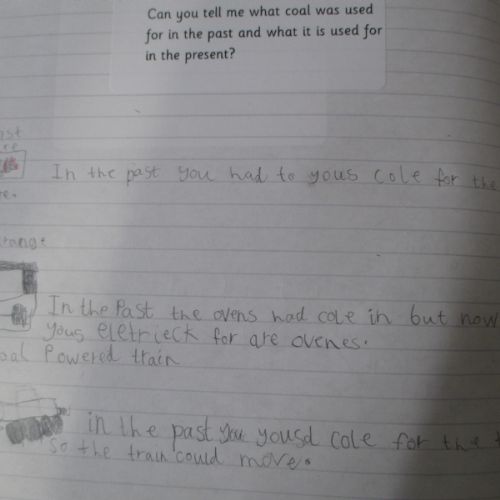 Can you tell me what coal was used
for in the past and what it is used for
in the present?
In the past you had to yous cole for the
In the Past the ovens had cole in but now
yous eletrieck for are ovenes.
Powered train
in the past you yousd cole for the
so the train could move.